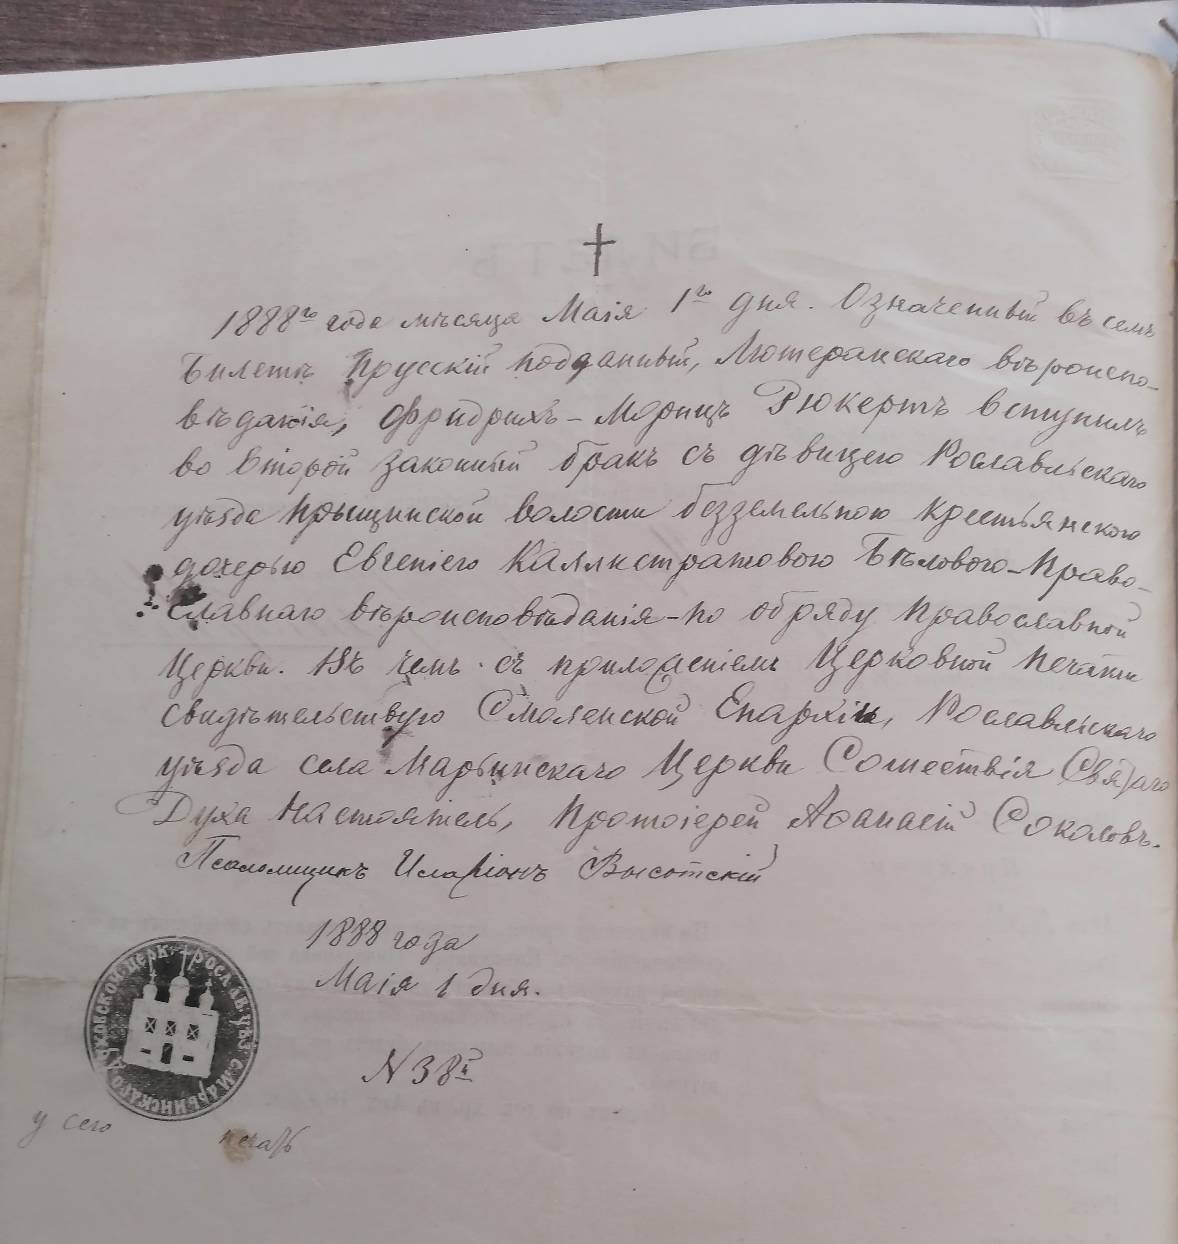 1888го года мѣсяца Маія 1го дня. Означенный въ семъ
Билетѣ Прусскій подданный, Лютеранскаго вѣроиспо-
вѣданія, Фридрихъ - Морицъ Рюкертъ вступилъ
во второй законный бракъ съ дѣвицею Рославльскаго
уѣзда Прыщинской волости безземельною крестьянскою
дочерью Евгеніею Каллистратовою Бѣловою - Право-
славнаго вѣроисповѣданія - по обряду Православной
Церкви. Въ чемъ съ приложеніемъ Церковной печати
свидѣтельствую Смоленской Епархіи, Рославльскаго
уѣзда села Марьинскаго Церкви Сошествія Святаго
Духа Настоятель, Протоіерей Аѳанасій Соколовъ.
Псаломщикъ Иларіонъ Высотскій
1888 года
Маія 1 дня.
N 38й
ДУХОВСКОЙ ЦЕРК. РОСЛАВ. УѢЗ. С. МАРЬИНСКАГО
у сего печать
БИЛЕТЪ